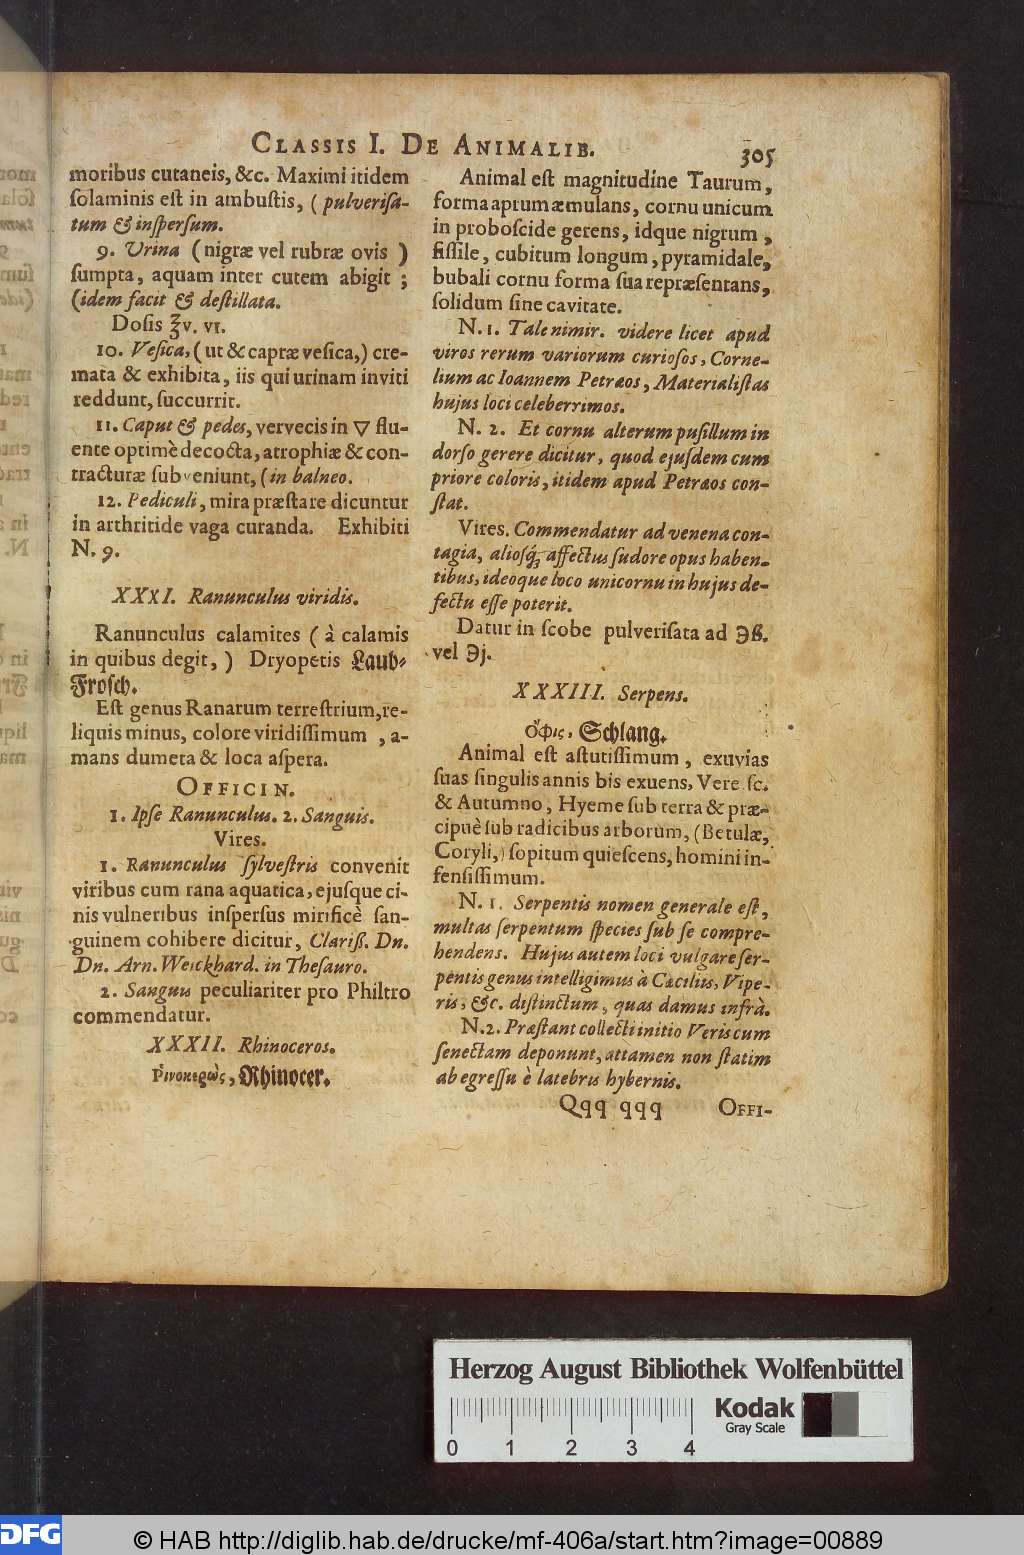 CLASSIS I. DE ANIMALIB.
305
moribus cutaneis, &c. Maximi itidem
ſolaminis eſt in ambuſtis, ( pulveriſa-
tum & inſperſum.
9. Urina ( nigræ vel rubræ ovis )
ſumpta, aquam inter cutem abigit ;
(idem facit & deſtillata.
Doſis ℥v. vı.
10. Veſica, ( ut & capræ veſica,) cre-
mata & exhibita, iis qui urinam inviti
reddunt, ſuccurrit.
11. Caput & pedes, vervecis in ▽ flu-
ente optimè decocta, atrophiæ & con-
tracturæ ſubveniunt, (in balneo.
12. Pediculi, mira præſtare dicuntur
in arthritide vaga curanda. Exhibiti
N. 9.
XXXI. Ranunculus viridis.
Ranunculus calamites ( à calamis
in quibus degit, ) Dryopetis Laub-
Froſch.
Eſt genus Ranarum terreſtrium, re-
liquis minus, colore viridiſſimum , a-
mans dumeta & loca aſpera.
OFFICIN.
1. Ipſe Ranunculus. 2. Sanguis.
Vires.
1. Ranunculus ſylveſtris convenit
viribus cum rana aquatica, ejuſque ci-
nis vulneribus inſperſus mirificè ſan-
guinem cohibere dicitur, Clariß. Dn.
Dn. Arn. Weickhard. in Theſauro.
2. Sanguis peculiariter pro Philtro
commendatur.
XXXII. Rhinoceros.
Ῥινοκερὼς, Rhinocer.
Animal eſt magnitudine Taurum,
forma aprum æmulans, cornu unicum
in proboſcide gerens, idque nigrum ,
fiſſile, cubitum longum, pyramidale,
bubali cornu forma ſua repræſentans,
ſolidum ſine cavitate.
N. 1. Tale nimir. videre licet apud
viros rerum variorum curioſos, Corne-
lium ac Ioannem Petræos, Materialiſtas
hujus loci celeberrimos.
N. 2. Et cornu alterum puſillum in
dorſo gerere dicitur, quod ejuſdem cum
priore coloris, itidem apud Petræos con-
ſtat.
Vires. Commendatur ad venena con-
tagia, alioſq́; affectus ſudore opus haben-
tibus, ideoque loco unicornu in hujus de-
fectu eſſe poterit.
Datur in ſcobe pulveriſata ad ℈ß.
vel ℈j.
XXXIII. Serpens.
ὄφις, Schlang.
Animal eſt aſtutiſſimum , exuvias
ſuas ſingulis annis bis exuens, Vere ſc.
& Autumno, Hyeme ſub terra & præ-
cipuè ſub radicibus arborum, (Betulæ,
Coryli,) ſopitum quieſcens, homini in-
fenſiſſimum.
N. 1. Serpentis nomen generale eſt,
multas ſerpentum ſpecies ſub ſe compre-
hendens. Hujus autem loci vulgare ſer-
pentis genus intelligimus à Cæciliis, Vipe-
ris, &c. diſtinctum, quas damus infrà.
N. 2. Præſtant collecti initio Veris cum
ſenectam deponunt, attamen non ſtatim
ab egreſſu è latebris hybernis.
Qqq qqq OFFI-
Herzog August Bibliothek Wolfenbüttel
0 1 2 3 4
Kodak
Gray Scale
DFG
© HAB http://diglib.hab.de/drucke/mf-406a/start.htm?image=00889